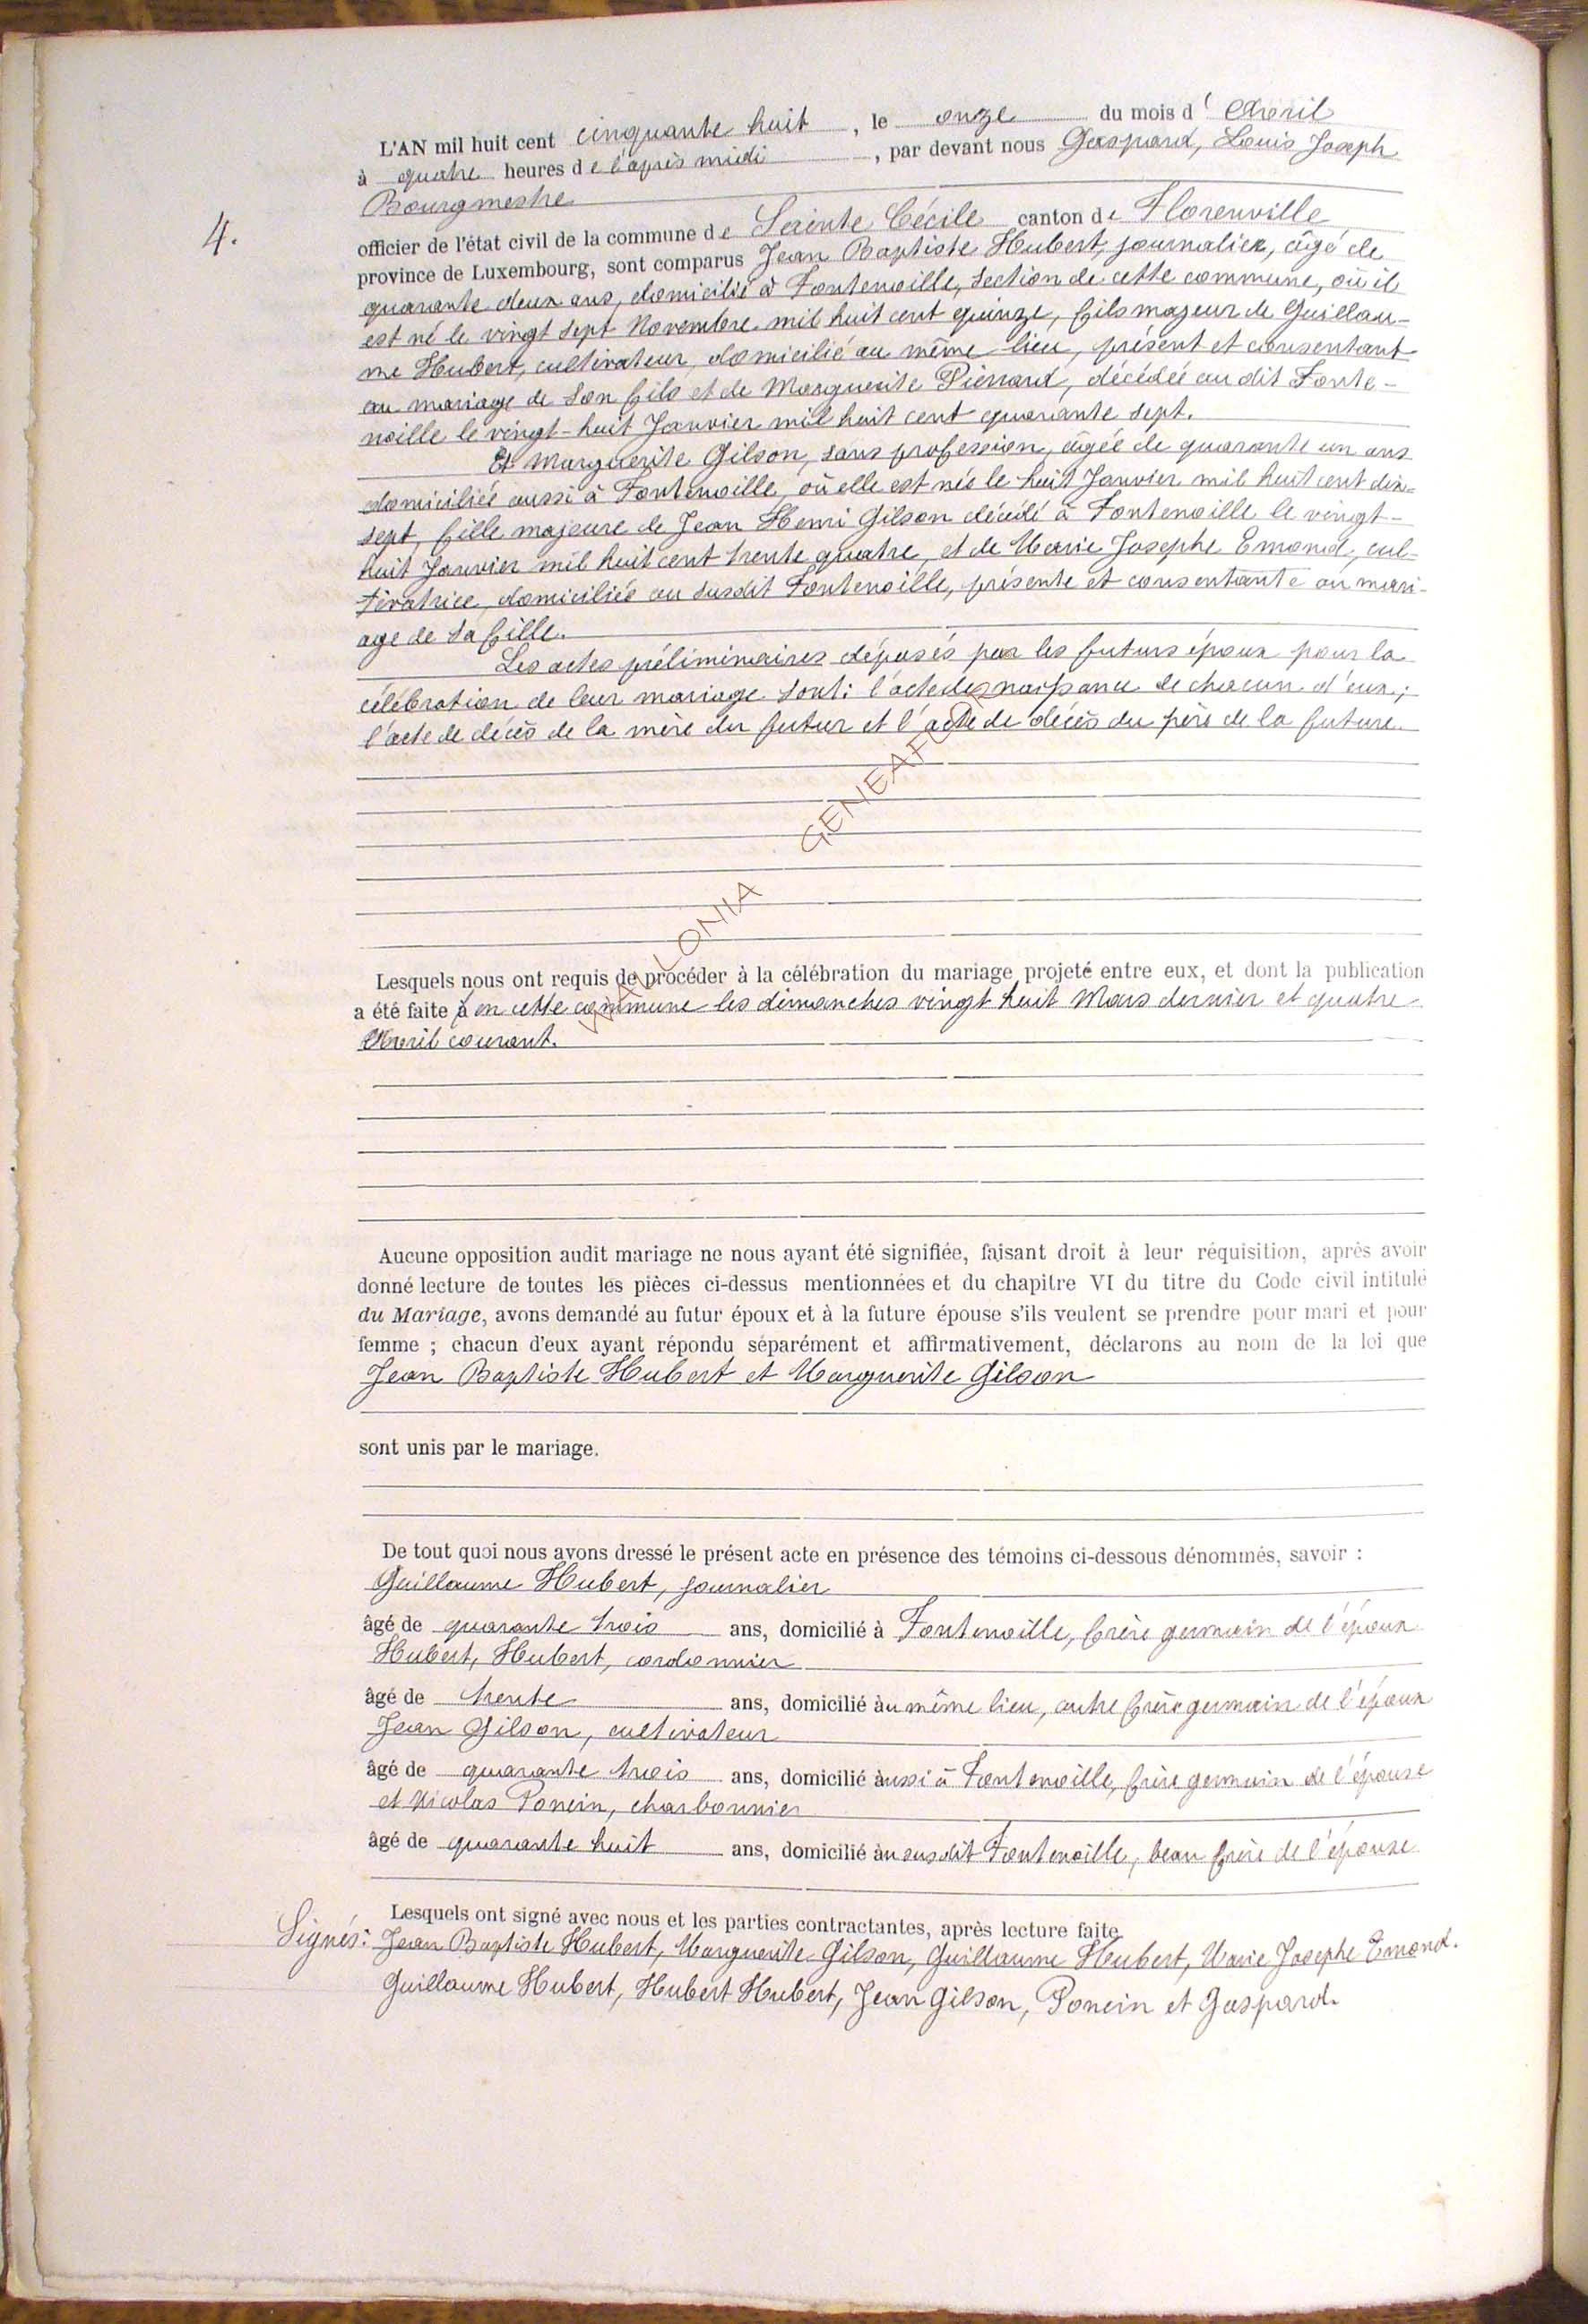 L'AN mil huit cent cinquante huit, le onze du mois d'Avril
à quatre heures de l'après midi, par devant nous Gaspard, Louis Joseph
Bourgmestre
4.
officier de l'état civil de la commune de Sainte Cécile canton de Florenville
province de Luxembourg, sont comparus Jean Baptiste Hubert, journalier, âgé de
quarante deux ans, domicilié à Fontenoille, section de cette commune, où il
est né le vingt sept Novembre mil huit cent quinze, fils majeur de Guillau-
me Hubert, cultivateur, domicilié au même lieu, présent et consentant
au mariage de son fils et de Marguerite Piérrard, décédée au dit Fonte-
noille le vingt-huit Janvier mil huit cent quarante sept.
Et Marguerite Gilson, sans profession, âgée de quarante un ans
domiciliée aussi à Fontenoille, où elle est née le huit Janvier mil huit cent dix-
sept, fille majeure de Jean Henri Gilson décédé à Fontenoille le vingt-
huit Janvier mil huit cent trente quatre, et de Marie Josephe Emond, cul-
tivatrice, domiciliée au susdit Fontenoille, présente et consentante au mari-
age de sa fille.
Les actes préliminaires déposés par les futurs époux pour la
célébration de leur mariage sont: l'acte de naissance de chacun d'eux;
l'acte de décès de la mère du futur et l'acte de décès du père de la future.
WALLONIA GENEAFUON
Lesquels nous ont requis de procéder à la célébration du mariage projeté entre eux, et dont la publication
a été faite à en cette commune les dimanches vingt huit Mars dernier et quatre
Avril courant.
Aucune opposition audit mariage ne nous ayant été signifiée, faisant droit à leur réquisition, après avoir
donné lecture de toutes les pièces ci-dessus mentionnées et du chapitre VI du titre du Code civil intitulé
du Mariage, avons demandé au futur époux et à la future épouse s'ils veulent se prendre pour mari et pour
femme ; chacun d'eux ayant répondu séparément et affirmativement, déclarons au nom de la loi que
Jean Baptiste Hubert et Marguerite Gilson
sont unis par le mariage.
De tout quoi nous avons dressé le présent acte en présence des témoins ci-dessous dénommés, savoir :
Guillaume Hubert, journalier
âgé de quarante trois ans, domicilié à Fontenoille, frère germain de l'époux
Hubert, Hubert, cordonnier
âgé de trente ans, domicilié au même lieu, autre frère germain de l'époux
Jean Gilson, cultivateur
âgé de quarante trois ans, domicilié aussi à Fontenoille, frère germain de l'épouse
et Nicolas Poncin, charbonnier
âgé de quarante huit ans, domicilié au susdit Fontenoille, beau frère de l'épouse
Lesquels ont signé avec nous et les parties contractantes, après lecture faite
Signés: Jean Baptiste Hubert, Marguerite Gilson, Guillaume Hubert, Marie Josephe Emond.
Guillaume Hubert, Hubert Hubert, Jean Gilson, Poncin et Gaspard.